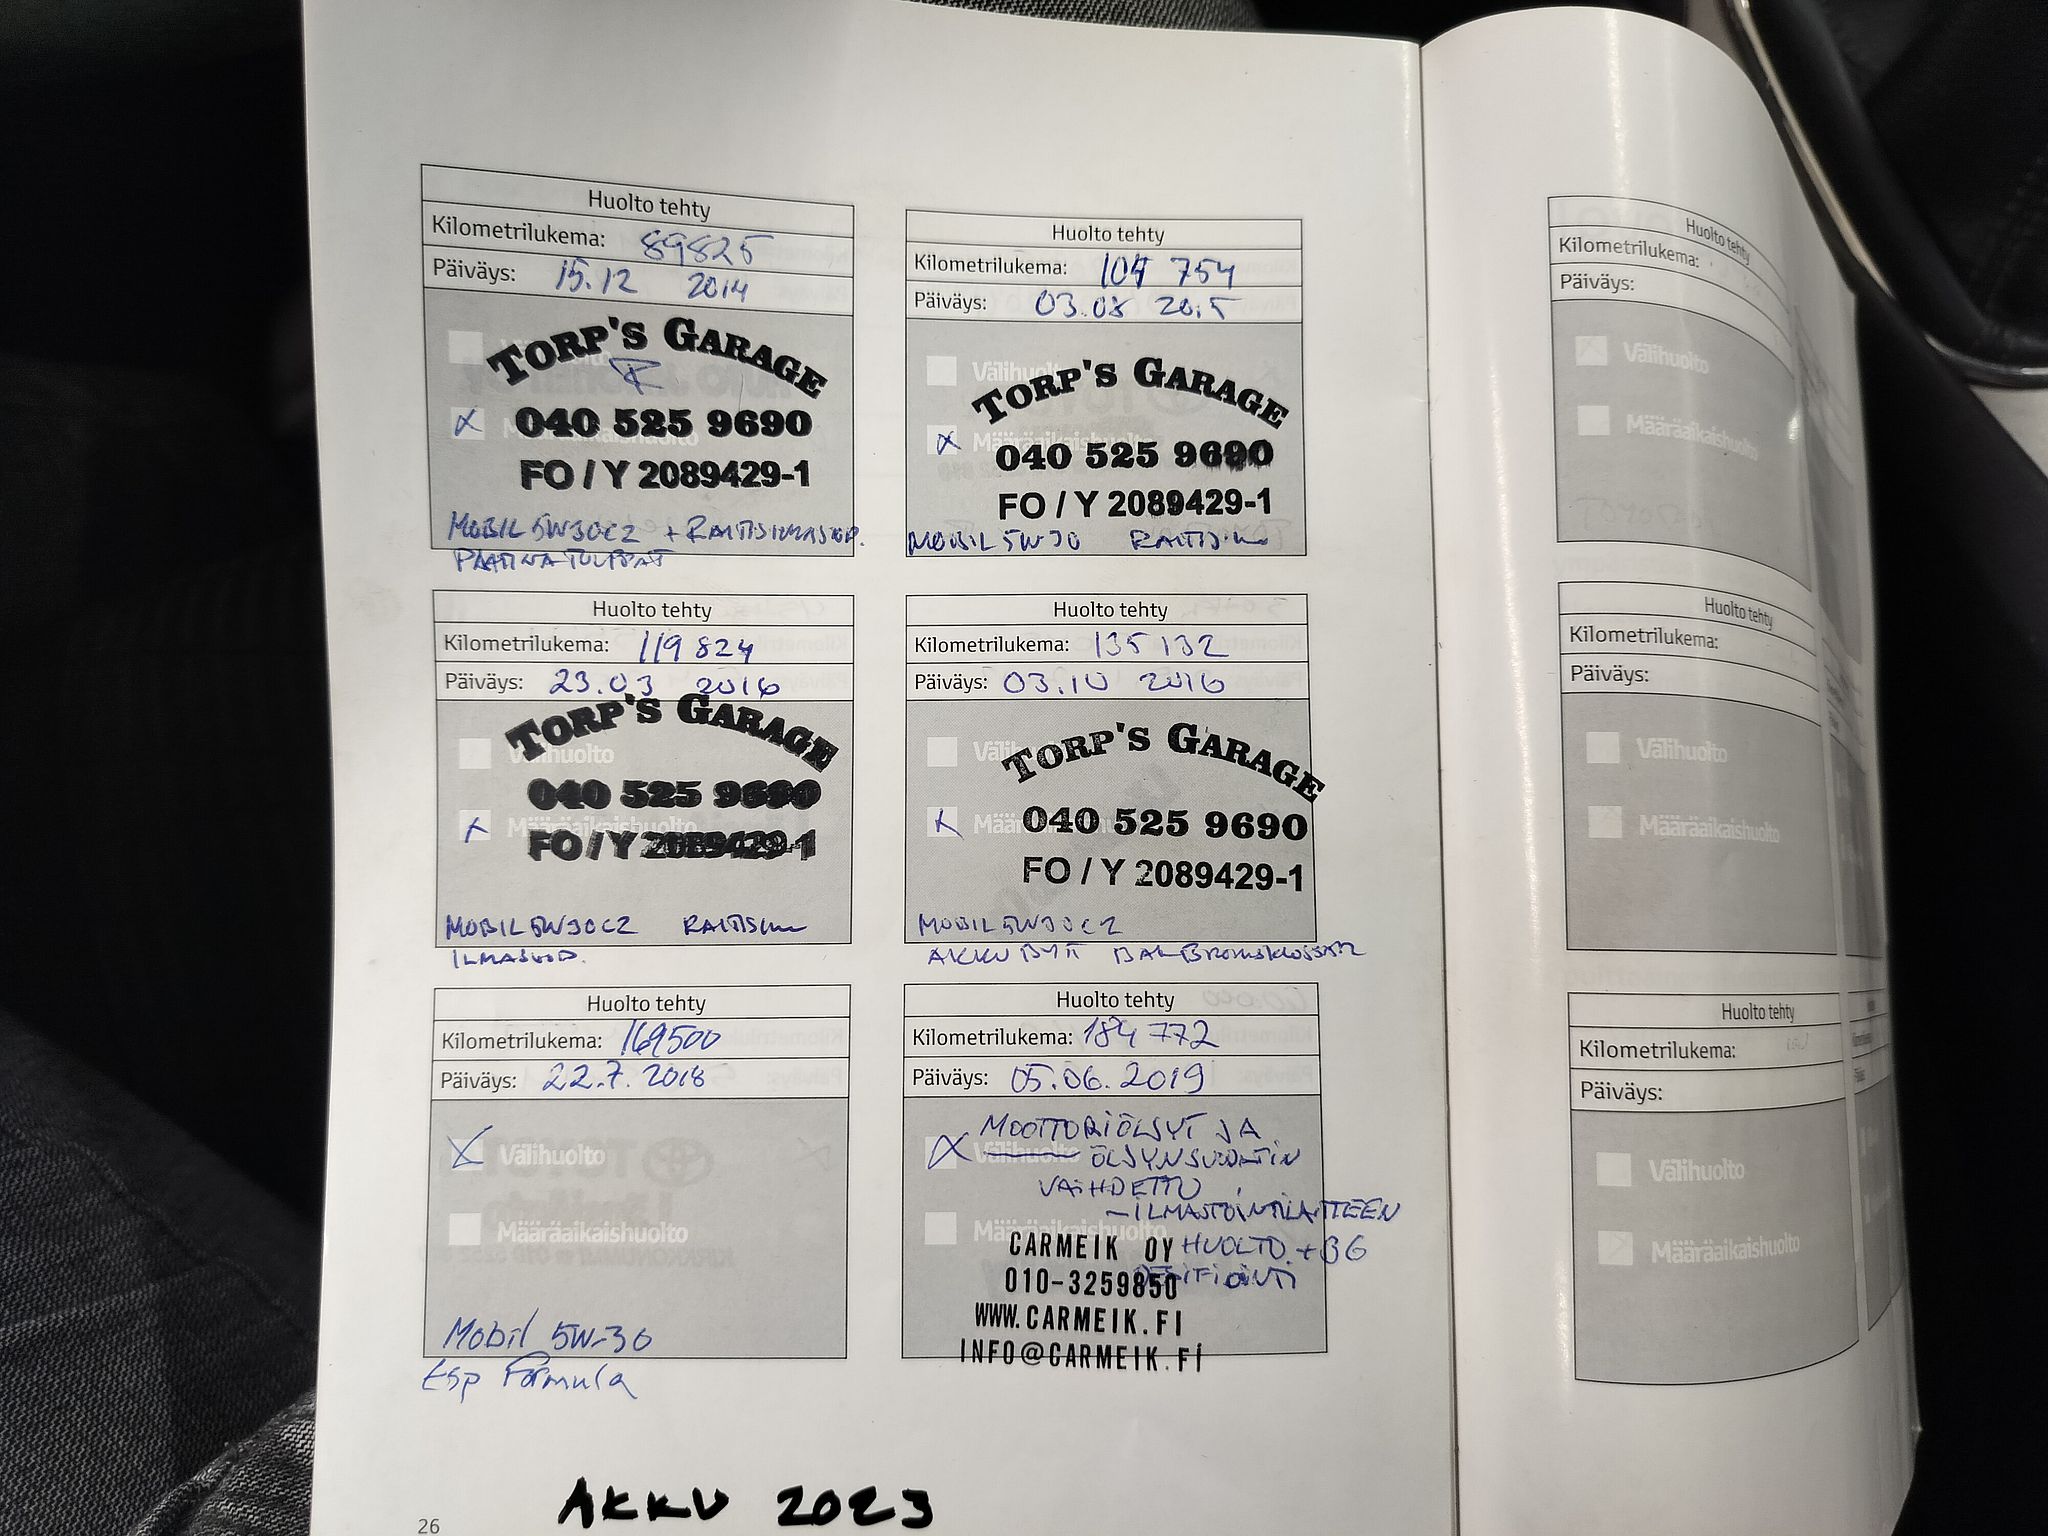 Huolto tehty
Kilometrilukema: 89825
Päiväys: 15.12 2014
TORP'S GARAGE
040 525 9690
FO / Y 2089429-1
MOBIL 5W30C2 + RAITISILMASUOD.
Huolto tehty
Kilometrilukema: 104 754
Päiväys: 03.08 2015
Välihuolto
TORP'S GARAGE
Määräaikaishuolto
040 525 9690
FO / Y 2089429-1
MOBIL 5W-30
Huolto tehty
Kilometrilukema: 119 824
Päiväys: 23.03 2016
TORP'S GARAGE
Välihuolto
040 525 9690
Määräaikaishuolto
FO / Y 2089429-1
MOBIL 5W30C2
ILMASUOD.
Huolto tehty
Kilometrilukema: 135 132
Päiväys: 03.10 2016
TORP'S GARAGE
040 525 9690
FO / Y 2089429-1
MOBIL 5W30C2
AKKU BYTT BAK BROMSKLOSSAR
Huolto tehty
Kilometrilukema: 169500
Päiväys: 22.7. 2018
Välihuolto
Määräaikaishuolto
Mobil 5W-30
Esp Formula
Huolto tehty
Kilometrilukema: 184 772
Päiväys: 05.06.2019
MOOTTORIÖLJYT JA
Välihuolto ÖLJYNSUODATIN
VAIHDETTU
- ILMASTOINTILAITTEEN
Määräaikaishuolto
CARMEIK OY HUOLTO +BG
010-3259850
WWW.CARMEIK.FI
INFO@CARMEIK.FI
AKKU 2023
26
Huolto tehty
Kilometrilukema:
Päiväys:
Välihuolto
Määräaikaishuolto
Huolto tehty
Kilometrilukema:
Päiväys:
Välihuolto
Määräaikaishuolto
Huolto tehty
Kilometrilukema:
Päiväys:
Välihuolto
Määräaikaishuolto